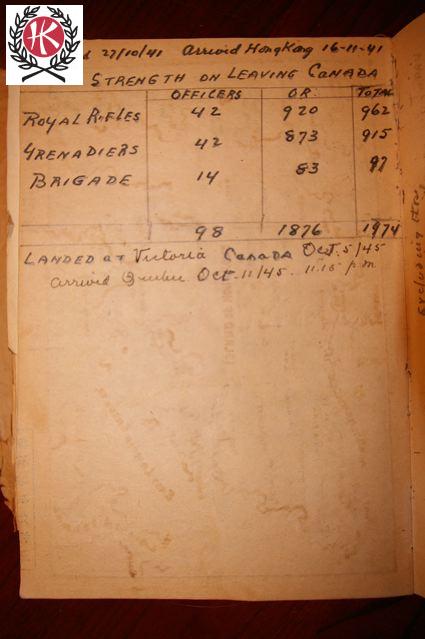 HK
27/10/41 Arrived Hong Kong 16-11-41
STRENGTH ON LEAVING CANADA
OFFICERS OR. TOTAL
ROYAL RIFLES 42 920 962
GRENADIERS 42 873 915
BRIGADE 14 83 97
98 1876 1974
LANDED AT Victoria CANADA Oct. 5/45
arrived Quebec Oct. 11/45. 11.15 p.m.
Excluding